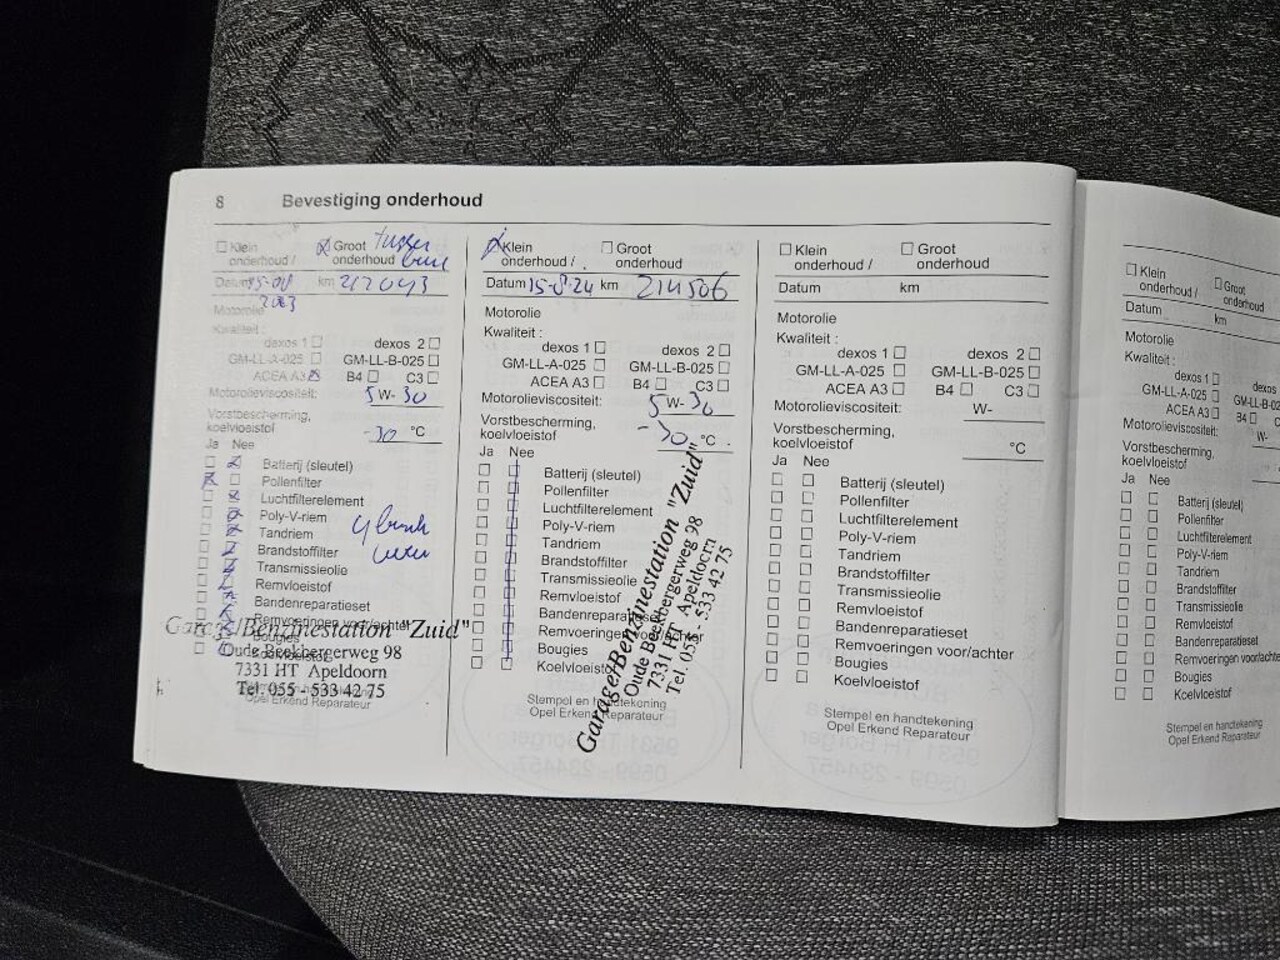 8 Bevestiging onderhoud
Klein onderhoud / Groot onderhoud
Datum km 212043
2023
Motorolie
Kwaliteit :
dexos 1 dexos 2
GM-LL-A-025 GM-LL-B-025
ACEA A3 B4 C3
Motorolieviscositeit: 5 W- 30
Vorstbescherming,
koelvloeistof -30 °C
Ja Nee
Batterij (sleutel)
Pollenfilter
Luchtfilterelement
Poly-V-riem
Tandriem
Brandstoffilter
Transmissieolie
Remvloeistof
Bandenreparatieset
Remvoeringen voor/achter
Bougies
Koelvloeistof
Garage/Benzinestation "Zuid"
Oude Beekbergerweg 98
7331 HT Apeldoorn
Tel. 055 - 533 42 75
Stempel en handtekening
Opel Erkend Reparateur
Klein onderhoud / Groot onderhoud
Datum 15-8-24 km 214506
Motorolie
Kwaliteit :
dexos 1 dexos 2
GM-LL-A-025 GM-LL-B-025
ACEA A3 B4 C3
Motorolieviscositeit: 5 W- 30
Vorstbescherming,
koelvloeistof -30 °C
Ja Nee
Batterij (sleutel)
Pollenfilter
Luchtfilterelement
Poly-V-riem
Tandriem
Brandstoffilter
Transmissieolie
Remvloeistof
Bandenreparatieset
Remvoeringen voor/achter
Bougies
Koelvloeistof
Garage/Benzinestation "Zuid"
Oude Beekbergerweg 98
7331 HT Apeldoorn
Tel. 055 - 533 42 75
Stempel en handtekening
Opel Erkend Reparateur
Klein onderhoud / Groot onderhoud
Datum km
Motorolie
Kwaliteit :
dexos 1 dexos 2
GM-LL-A-025 GM-LL-B-025
ACEA A3 B4 C3
Motorolieviscositeit: W-
Vorstbescherming,
koelvloeistof °C
Ja Nee
Batterij (sleutel)
Pollenfilter
Luchtfilterelement
Poly-V-riem
Tandriem
Brandstoffilter
Transmissieolie
Remvloeistof
Bandenreparatieset
Remvoeringen voor/achter
Bougies
Koelvloeistof
Stempel en handtekening
Opel Erkend Reparateur
Klein onderhoud / Groot onderhoud
Datum km
Motorolie
Kwaliteit :
dexos 1 dexos
GM-LL-A-025 GM-LL-B-02
ACEA A3 B4 C
Motorolieviscositeit: W-
Vorstbescherming,
koelvloeistof
Ja Nee
Batterij (sleutel)
Pollenfilter
Luchtfilterelement
Poly-V-riem
Tandriem
Brandstoffilter
Transmissieolie
Remvloeistof
Bandenreparatieset
Remvoeringen voor/achte
Bougies
Koelvloeistof
Stempel en handtekening
Opel Erkend Reparateur